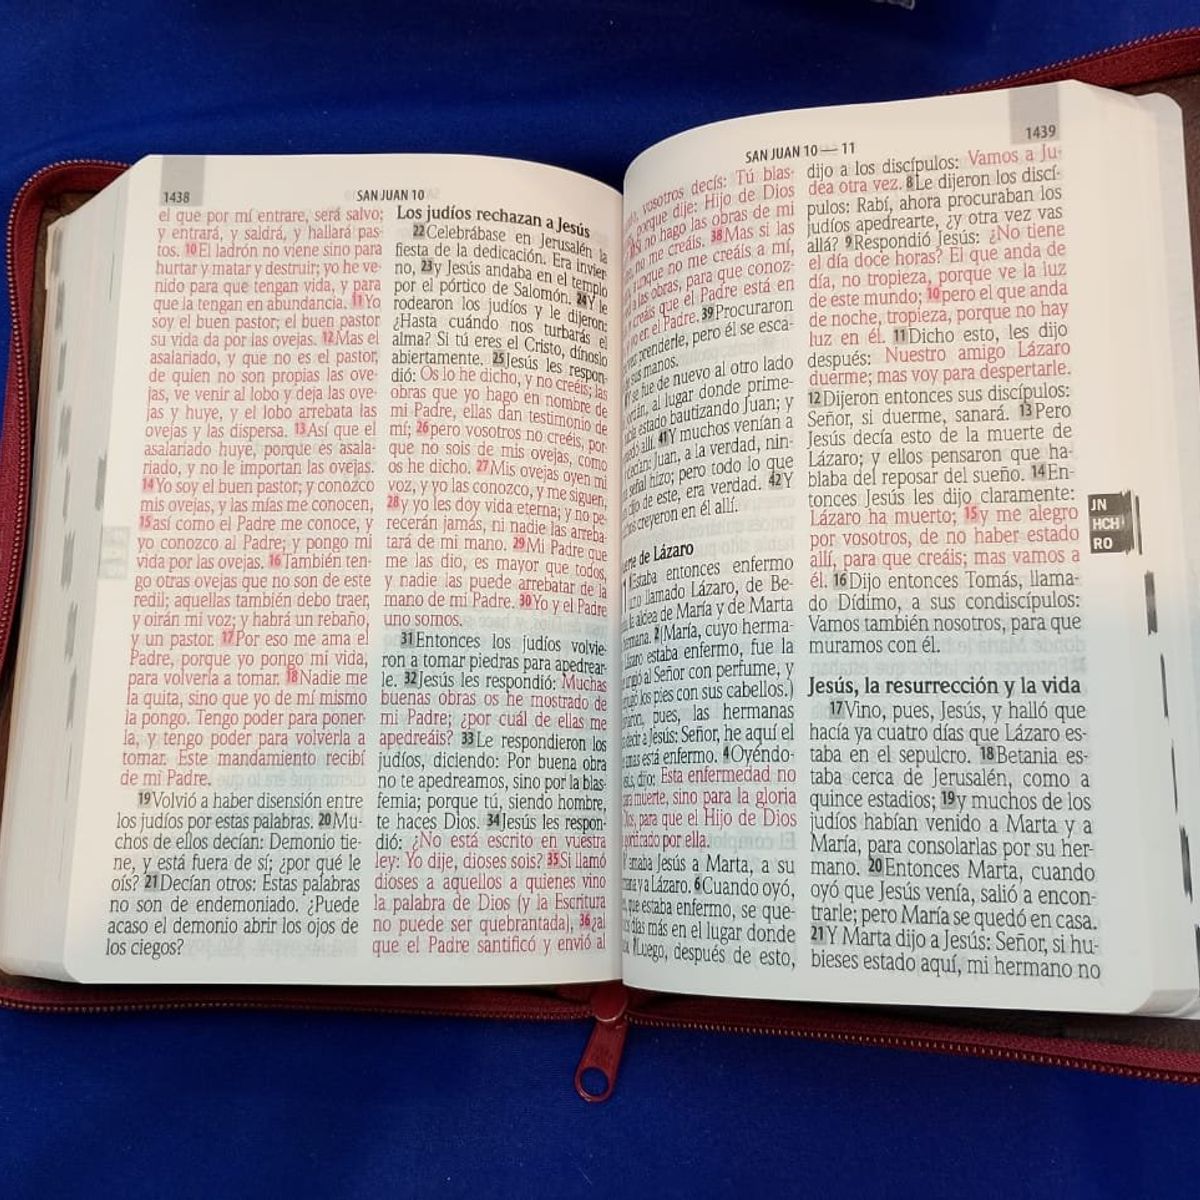 1438
SAN JUAN 10
el que por mí entrare, será salvo;
y entrará, y saldrá, y hallará pas-
tos. 10El ladrón no viene sino para
hurtar y matar y destruir; yo he ve-
nido para que tengan vida, y para
que la tengan en abundancia. 11Yo
soy el buen pastor; el buen pastor
su vida da por las ovejas. 12Mas el
asalariado, y que no es el pastor,
de quien no son propias las ove-
jas, ve venir al lobo y deja las ove-
jas y huye, y el lobo arrebata las
ovejas y las dispersa. 13Así que el
asalariado huye, porque es asala-
riado, y no le importan las ovejas.
14Yo soy el buen pastor; y conozco
mis ovejas, y las mías me conocen,
15así como el Padre me conoce, y
yo conozco al Padre; y pongo mi
vida por las ovejas. 16También ten-
go otras ovejas que no son de este
redil; aquellas también debo traer,
y oirán mi voz; y habrá un rebaño,
y un pastor. 17Por eso me ama el
Padre, porque yo pongo mi vida,
para volverla a tomar. 18Nadie me
la quita, sino que yo de mí mismo
la pongo. Tengo poder para poner-
la, y tengo poder para volverla a
tomar. Este mandamiento recibí
de mi Padre.
19Volvió a haber disensión entre
los judíos por estas palabras. 20Mu-
chos de ellos decían: Demonio tie-
ne, y está fuera de sí; ¿por qué le
oís? 21Decían otros: Estas palabras
no son de endemoniado. ¿Puede
acaso el demonio abrir los ojos de
los ciegos?
Los judíos rechazan a Jesús
22Celebrábase en Jerusalén la
fiesta de la dedicación. Era invier-
no, 23y Jesús andaba en el templo
por el pórtico de Salomón. 24Y le
rodearon los judíos y le dijeron:
¿Hasta cuándo nos turbarás el
alma? Si tú eres el Cristo, dínoslo
abiertamente. 25Jesús les respon-
dió: Os lo he dicho, y no creéis; las
obras que yo hago en nombre de
mi Padre, ellas dan testimonio de
mí; 26pero vosotros no creéis, por-
que no sois de mis ovejas, como
os he dicho. 27Mis ovejas oyen mi
voz, y yo las conozco, y me siguen,
28y yo les doy vida eterna; y no pe-
recerán jamás, ni nadie las arreba-
tará de mi mano. 29Mi Padre que
me las dio, es mayor que todos,
y nadie las puede arrebatar de la
mano de mi Padre. 30Yo y el Padre
uno somos.
31Entonces los judíos volvie-
ron a tomar piedras para apedrear-
le. 32Jesús les respondió: Muchas
buenas obras os he mostrado de
mi Padre; ¿por cuál de ellas me
apedreáis? 33Le respondieron los
judíos, diciendo: Por buena obra
no te apedreamos, sino por la blas-
femia; porque tú, siendo hombre,
te haces Dios. 34Jesús les respon-
dió: ¿No está escrito en vuestra
ley: Yo dije, dioses sois? 35Si llamó
dioses a aquellos a quienes vino
la palabra de Dios (y la Escritura
no puede ser quebrantada), 36¿al
que el Padre santificó y envió al
SAN JUAN 10 — 11
1439
vosotros decís: Tú blas-
porque dije: Hijo de Dios
Si no hago las obras de mi
no me creáis. 38Mas si las
aunque no me creáis a mí,
a las obras, para que conoz-
creáis que el Padre está en
yo en el Padre. 39Procuraron
vez prenderle, pero él se esca-
de sus manos.
Y se fue de nuevo al otro lado
al lugar donde prime-
había estado bautizando Juan; y
allí. 41Y muchos venían a
decían: Juan, a la verdad, nin-
señal hizo; pero todo lo que
dijo de este, era verdad. 42Y
creyeron en él allí.
de Lázaro
Estaba entonces enfermo
uno llamado Lázaro, de Be-
la aldea de María y de Marta
hermana. 2(María, cuyo herma-
Lázaro estaba enfermo, fue la
ungió al Señor con perfume, y
los pies con sus cabellos.)
pues, las hermanas
decir a Jesús: Señor, he aquí el
amas está enfermo. 4Oyéndo-
dijo: Esta enfermedad no
para muerte, sino para la gloria
Dios, para que el Hijo de Dios
glorificado por ella.
Y amaba Jesús a Marta, a su
y a Lázaro. 6Cuando oyó,
que estaba enfermo, se que-
días más en el lugar donde
7Luego, después de esto,
dijo a los discípulos: Vamos a Ju-
dea otra vez. 8Le dijeron los discí-
pulos: Rabí, ahora procuraban los
judíos apedrearte, ¿y otra vez vas
allá? 9Respondió Jesús: ¿No tiene
el día doce horas? El que anda de
día, no tropieza, porque ve la luz
de este mundo; 10pero el que anda
de noche, tropieza, porque no hay
luz en él. 11Dicho esto, les dijo
después: Nuestro amigo Lázaro
duerme; mas voy para despertarle.
12Dijeron entonces sus discípulos:
Señor, si duerme, sanará. 13Pero
Jesús decía esto de la muerte de
Lázaro; y ellos pensaron que ha-
blaba del reposar del sueño. 14En-
tonces Jesús les dijo claramente:
Lázaro ha muerto; 15y me alegro
por vosotros, de no haber estado
allí, para que creáis; mas vamos a
él. 16Dijo entonces Tomás, llama-
do Dídimo, a sus condiscípulos:
Vamos también nosotros, para que
muramos con él.
Jesús, la resurrección y la vida
17Vino, pues, Jesús, y halló que
hacía ya cuatro días que Lázaro es-
taba en el sepulcro. 18Betania es-
taba cerca de Jerusalén, como a
quince estadios; 19y muchos de los
judíos habían venido a Marta y a
María, para consolarlas por su her-
mano. 20Entonces Marta, cuando
oyó que Jesús venía, salió a encon-
trarle; pero María se quedó en casa.
21Y Marta dijo a Jesús: Señor, si hu-
bieses estado aquí, mi hermano no
JN
HCH
RO